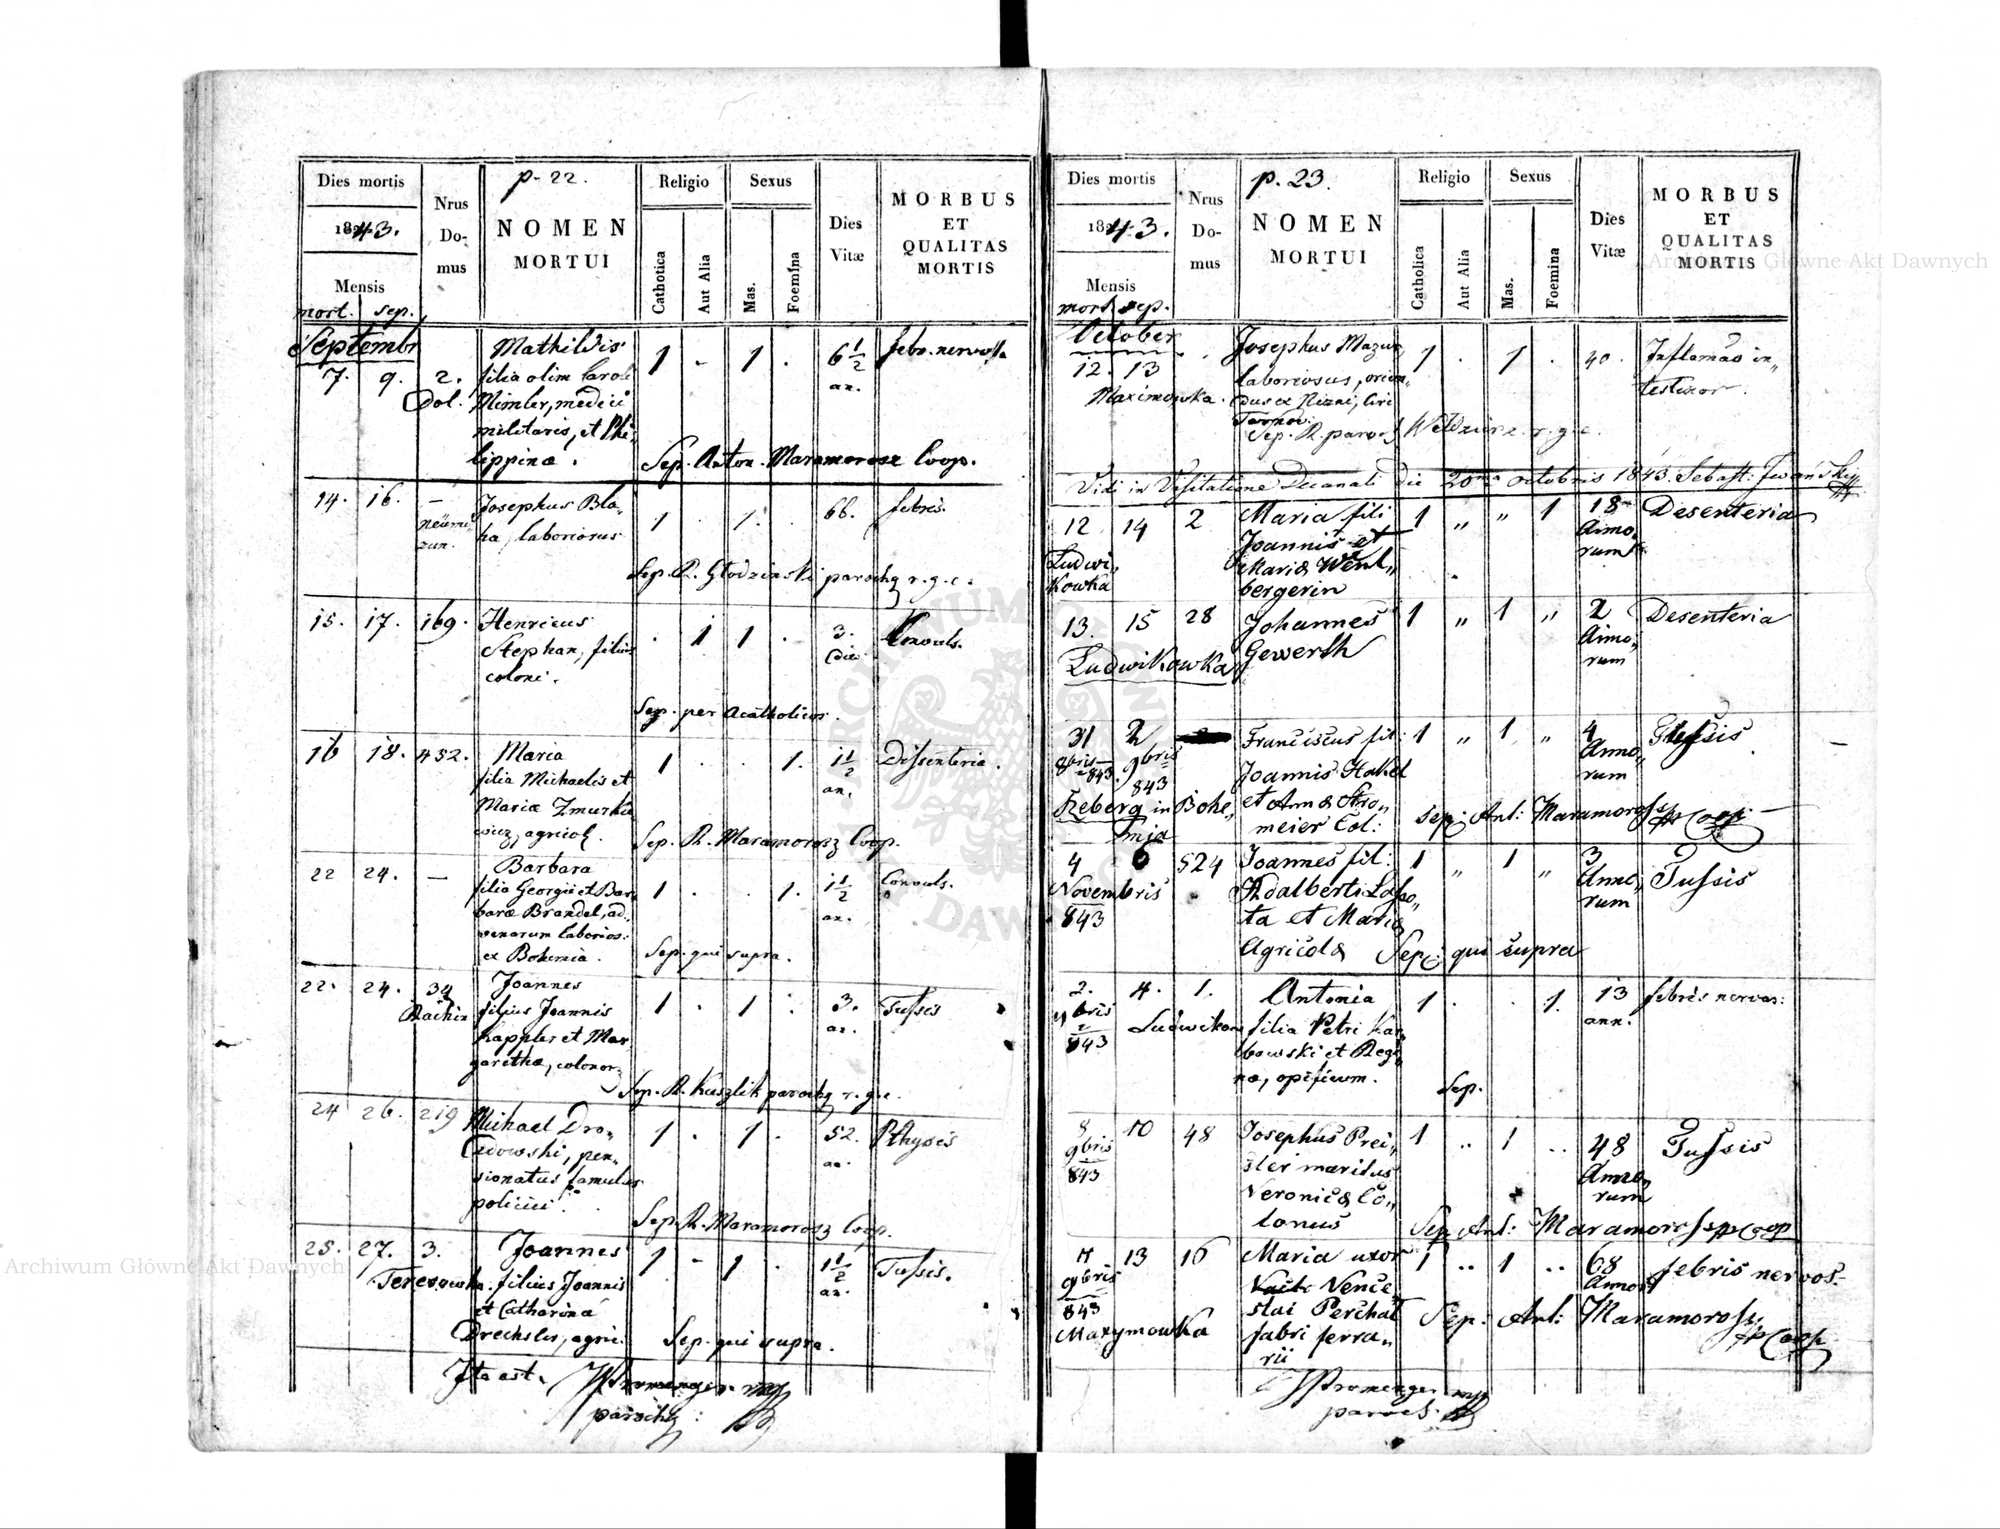 Dies mortis
1843.
Mensis
mort. sep.
Nrus
Do-
mus
p. 22.
NOMEN
MORTUI
Religio
Catholica
Aut Alia
Sexus
Mas.
Foemina
Dies
Vitæ
MORBUS
ET
QUALITAS
MORTIS
Septembr
7. 9. 2.
Dol.
Mathildis
filia olim Caroli
Mimler, medici
militaris, et Phi-
lippinæ.
1 - 1 .
6 1/2
an.
febr. nervosa
Sep. Anton. Maramorosz Coop.
14. 16. —
Josephus Bla-
ha, laboriosus
1 . 1. .
66.
febris.
Sep. R. Głodzinski parochg r. g. c.
15. 17. 169.
Henricus
Stephan, filius
coloni.
. 1 1 .
3.
dies
Convuls.
Sep. per acatholicos.
16 18. 452.
Maria
filia Michaelis et
Mariæ Zmurkie
wicz, agricol.
1 . . 1.
1 1/2
an.
Dissenteria.
Sep. R. Maramorosz Coop.
22 24. —
Barbara
filia Georgii et Bar-
baræ Brandel, ad-
venarum laborios:
ex Bohemia.
1 . . 1.
1 1/2
an.
Convuls.
Sep. qui supra.
22. 24. 34
Joannes
filius Joannis
Kappler et Mar-
garethæ, colonor.
1 . 1 .
3.
an.
Tussis
Sep. R. Kuszlik parochg r. g. c.
24 26. 219
Michael Dro-
zdowski, pen-
sionatus famulus
policiei.
1 . 1 .
52.
an.
Pthysis
Sep. R. Maramorosz Coop.
25. 27. 3.
Teresowka.
Joannes
filius Joannis
et Catharinæ
Drechsler, agric.
1 - 1 .
1 1/2
an.
Tussis.
Sep. qui supra.
Ita est.
parochg:
Dies mortis
1843.
Mensis
mort. sep.
Nrus
Do-
mus
p. 23.
NOMEN
MORTUI
Religio
Catholica
Aut Alia
Sexus
Mas.
Foemina
Dies
Vitæ
MORBUS
ET
QUALITAS
MORTIS
October
12. 13
Maximowka.
Josephus Mazur,
laboriosus, oriun-
dus ex Nizni, Circ
Tarnov.
1 . 1 .
40.
Inflamao in-
testinor.
Sep. R. paroch Wełdzirz r. g. c.
Vidi in Visitatione Decanali die 20ma octobris 1843. Sebast: Iwański
12 14 2
Ludwi„
kowka
Maria fili
Joannis et
Mariæ Wein„
bergerin
1 „ „ 1
18
Anno„
rum
Desenteria
13. 15 28
Ludwikowka
Johannes
Gewerth
1 „ 1 „
2
Anno„
rum
Desenteria
31 2
8bris 9bris
843. 843
in Bohe„
mia
Franciscus fil:
Joannis Hakel
et Annæ Stro„
meier Col:
1 „ 1 „
4
Anno„
rum
Tussis
Sep: Ant: Maramorosz Coop
4 6 524
Novembris
843
Joannes fil:
Adalberti Lasso„
ta et Mariæ
Agricolæ
1 „ 1 „
3
Anno„
rum
Tussis
Sep: qui supra
2. 4. 1.
9bris
843
Ludwikow
Antonia
filia Petri Kar
bowski et Regi
næ, opificum.
1 . . 1.
13
ann.
febris nervos:
Sep.
8 10 48
9bris
843
Josephus Prei„
sler maritus
Veronicæ Co„
lonus
1 .. 1 ..
48
Anno„
rum
Tussis
Sep: Ant: Maramorosz Coop
11 13 16
9bris
843
Maxymowka
Maria uxor
Vence
slai Perchal
fabri ferra„
rii
1 .. 1 ..
68
Annor
febris nervos.
Sep: Ant: Maramorosz
Coop
paroch.
Archiwum Główne Akt Dawnych
Archiwum Główne Akt Dawnych
ARCHIWUM GŁÓWNE AKT DAWNYCH